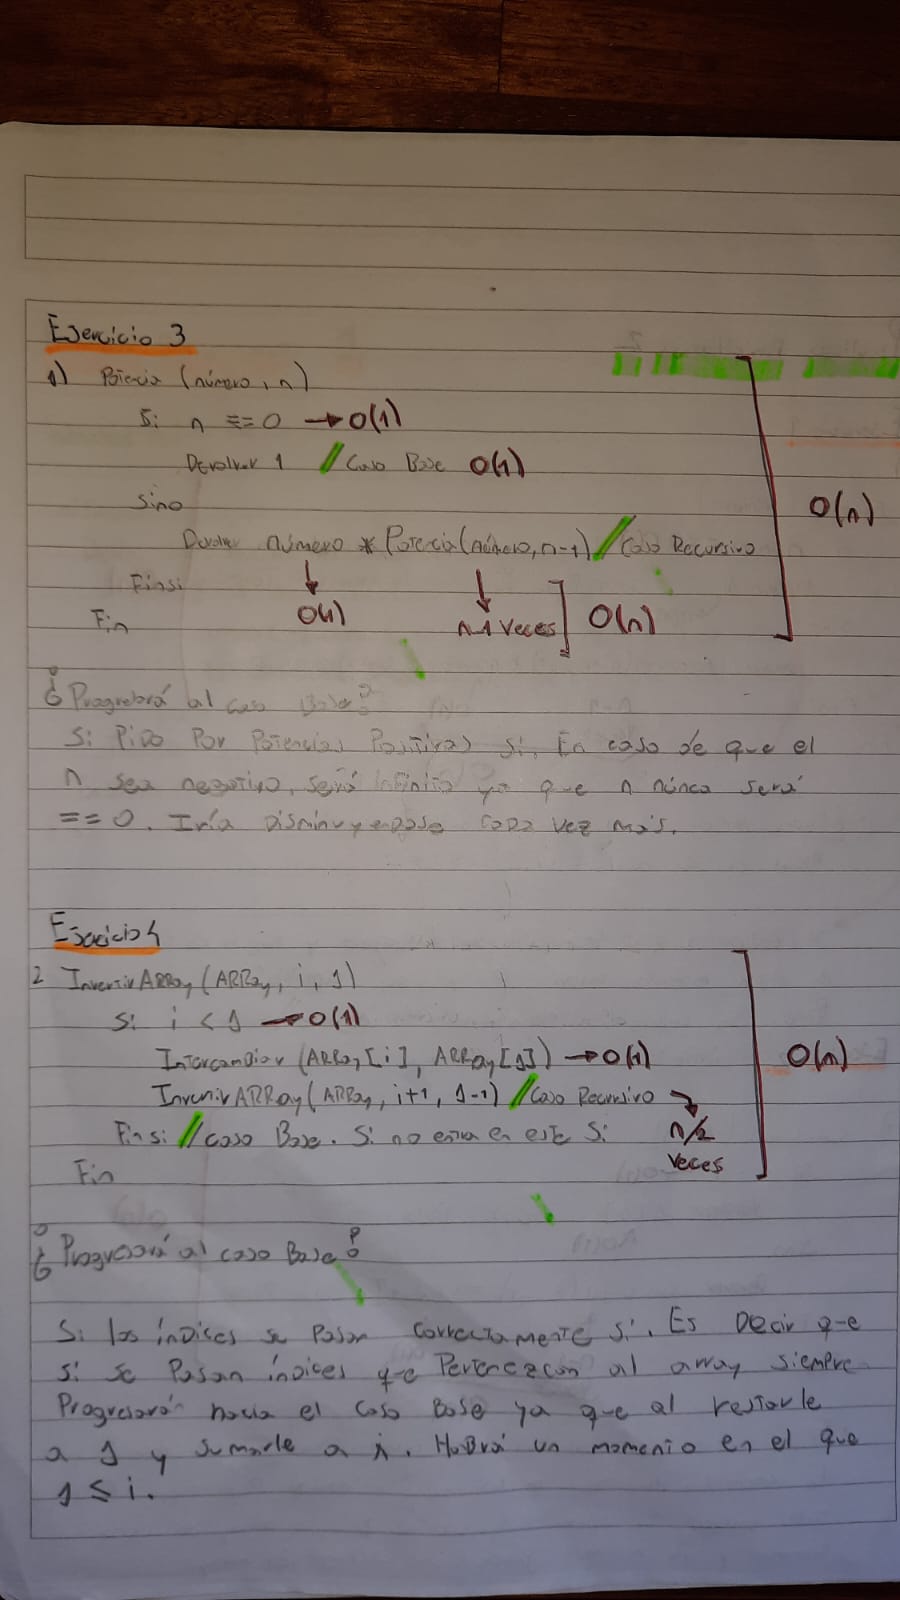 Ejercicio 3
1) Potencia (número, n)
Si n == 0 → O(1)
Devolver 1 // Caso Base O(1)
Sino
Devolver número * Potencia(número, n-1) // Caso Recursivo
Finsi
Fin
O(1)
n-1 veces
O(n)
O(n)
¿Progresará al caso Base?
Si Pido Por Potencias Positivas sí. En caso de que el
n sea negativo, será infinito ya que n núnca será
== 0. Iría Disminuyendose cada vez más.
Ejercicio 4
2 InvertirARRay (ARRay, i, j)
Si i < j → O(1)
Intercambiar (ARRay[i], ARRay[j]) → O(1)
InvertirARRay (ARRay, i+1, j-1) // Caso Recursivo
Finsi // Caso Base. Si no entra en este Si
Fin
n/2
veces
O(n)
¿Progresará al caso Base?
Si los índices se Pasan correctamente sí. Es Decir que
si se Pasan índices que Pertenezcan al array siempre
Progresará hacia el caso Base ya que al restarle
a j y sumarle a i. Habrá un momento en el que
j ≤ i.